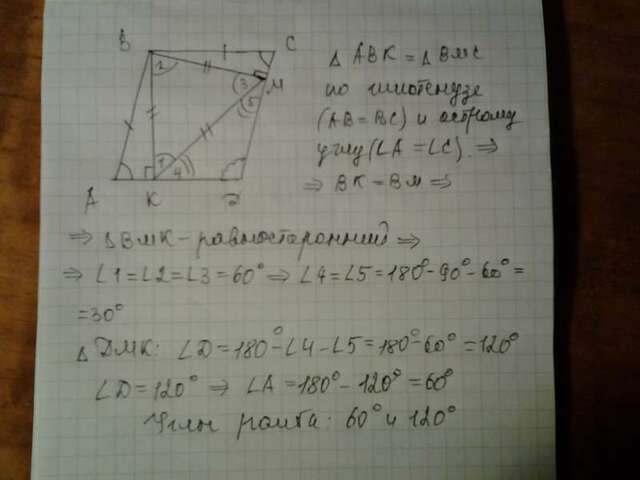 B C
2
3 M
5
1
4
A K D
Δ ABK = Δ BMC
по гипотенузе
(AB = BC) и острому
углу (∠A = ∠C). ⇒
⇒ BK = BM ⇒
⇒ Δ BMK - равносторонний ⇒
⇒ ∠1 = ∠2 = ∠3 = 60° ⇒ ∠4 = ∠5 = 180° - 90° - 60° =
= 30°
Δ DMK: ∠D = 180° - ∠4 - ∠5 = 180° - 60° = 120°
∠D = 120° ⇒ ∠A = 180° - 120° = 60°
Углы ромба: 60° и 120°